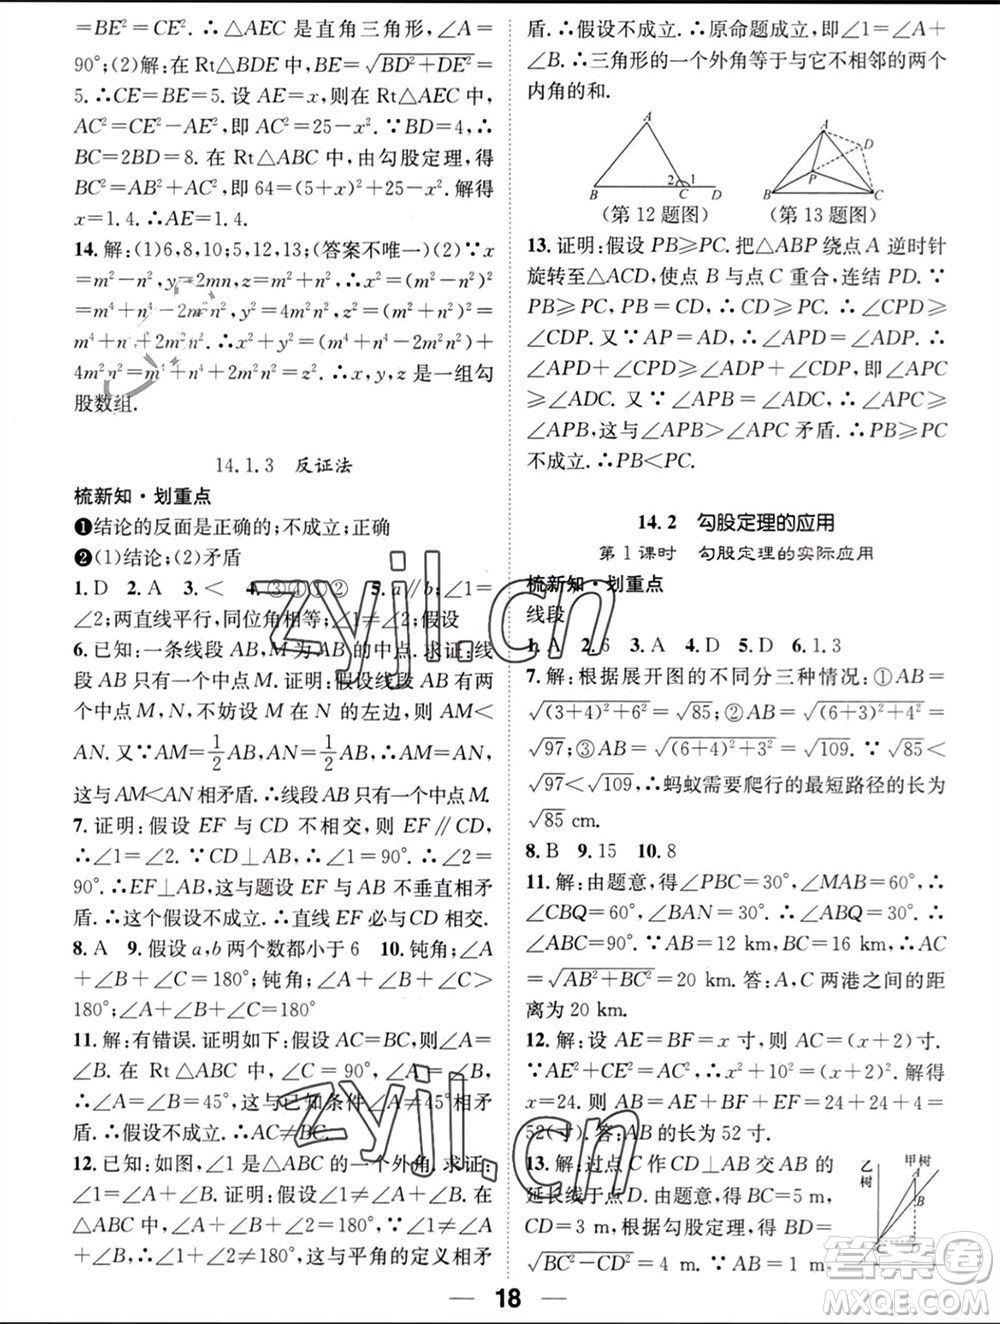 =BE²=CE². ∴△AEC 是直角三角形,∠A=
90°;(2)解:在 Rt△BDE 中,BE=√(BD²+DE²)=
5. ∴CE=BE=5. 设 AE=x,则在 Rt△AEC 中,
AC²=CE²−AE²,即 AC²=25−x². ∵BD=4,∴
BC=2BD=8. 在 Rt△ABC 中,由勾股定理,得
BC²=AB²+AC²,即 64=(5+x)²+25−x². 解得
x=1.4. ∴AE=1.4.
14. 解:(1)6,8,10;5,12,13;(答案不唯一)(2)∵x
=m²−n²,y=2mn,z=m²+n²,∴x²=(m²−n²)²=
m⁴+n⁴−2m²n²,y²=4m²n²,z²=(m²+n²)²=
m⁴+n⁴+2m²n². ∴x²+y²=(m⁴+n⁴−2m²n²)+
4m²n²=m⁴+n⁴+2m²n²=z². ∴x,y,z 是一组勾
股数组.
14.1.3 反证法
梳新知·划重点
❶结论的反面是正确的;不成立;正确
❷(1)结论;(2)矛盾
1. D 2. A 3. < 4. ③④①② 5. a∥b;∠1=
∠2;两直线平行,同位角相等;假设
6. 已知:一条线段 AB,M 为 AB 的中点. 求证:线
段 AB 只有一个中点 M. 证明:假设线段 AB 有两
个中点 M,N,不妨设 M 在 N 的左边,则 AM<
AN. 又∵AM=1/2AB,AN=1/2AB,∴AM=AN.
这与 AM<AN 相矛盾. ∴线段 AB 只有一个中点 M.
7. 证明:假设 EF 与 CD 不相交,则 EF∥CD.
∴∠1=∠2. ∵CD⊥AB,∴∠1=90°. ∴∠2=
90°. ∴EF⊥AB,这与题设 EF 与 AB 不垂直相矛
盾. ∴这个假设不成立. ∴直线 EF 必与 CD 相交.
8. A 9. 假设 a,b 两个数都小于 6 10. 钝角;∠A
+∠B+∠C=180°;钝角;∠A+∠B+∠C>
180°;∠A+∠B+∠C=180°
11. 解:有错误. 证明如下:假设 AC=BC,则∠A=
∠B. 在 Rt △ABC 中,∠C=90°,∠A+∠B=90°.
∴∠A=∠B=45°,这与已知条件∠A≠45°相矛
盾. ∴假设不成立. ∴AC≠BC.
12. 已知:如图,∠1 是△ABC 的一个外角. 求证:
∠1=∠A+∠B. 证明:假设∠1≠∠A+∠B. 在
△ABC 中,∵∠A+∠B+∠2=180°,∴∠A+∠B
=180°−∠2. ∴∠1+∠2≠180°,这与平角的定义相矛
盾. ∴假设不成立. ∴原命题成立,即∠1=∠A+
∠B. ∴三角形的一个外角等于与它不相邻的两个
内角的和.
A
B
2
1
C
D
(第 12 题图)
A
D
P
B
C
(第 13 题图)
13. 证明:假设 PB≥PC. 把△ABP 绕点 A 逆时针
旋转至△ACD,使点 B 与点 C 重合,连结 PD. ∵
PB≥PC,PB=CD,∴CD≥PC. ∴∠CPD≥
∠CDP. 又∵AP=AD,∴∠APD=∠ADP.
∴∠APD+∠CPD≥∠ADP+∠CDP,即∠APC
≥∠ADC. 又∵∠APB=∠ADC,∴∠APC≥
∠APB,这与∠APB>∠APC 矛盾. ∴PB≥PC
不成立. ∴PB<PC.
14.2 勾股定理的应用
第 1 课时 勾股定理的实际应用
梳新知·划重点
线段
1. A 2. 6 3. A 4. D 5. D 6. 1.3
7. 解:根据展开图的不同分三种情况:①AB=
√((3+4)²+6²)=√85;②AB=√((6+3)²+4²)=
√97;③AB=√((6+4)²+3²)=√109. ∵√85<
√97<√109,∴蚂蚁需要爬行的最短路径的长为
√85 cm.
8. B 9. 15 10. 8
11. 解:由题意,得∠PBC=30°,∠MAB=60°,∴
∠CBQ=60°. ∵AM∥BN,∴∠ABQ=30°. ∴
∠ABC=90°. ∵AB=12 km,BC=16 km,∴AC
=√(AB²+BC²)=20 km. 答:A,C 两港之间的距
离为 20 km.
12. 解:设 AE=BF=x 寸,则 AC=(x+2)寸.
∵AE²+CE²=AC²,∴x²+10²=(x+2)². 解得
x=24. 则 AB=AE+BF+EF=24+24+4=
52(寸). 答:AB 的长为 52 寸.
13. 解:过点 C 作 CD⊥AB 交 AB 的
延长线于点 D. 由题意,得 BC=5 m,
CD=3 m,根据勾股定理,得 BD=
√(BC²−CD²)=4 m. ∵AB=1 m,
乙
树
甲树
A
B
C
D
18
zyjl.cn
zyjl.cn
答案圈
MXQE.COM